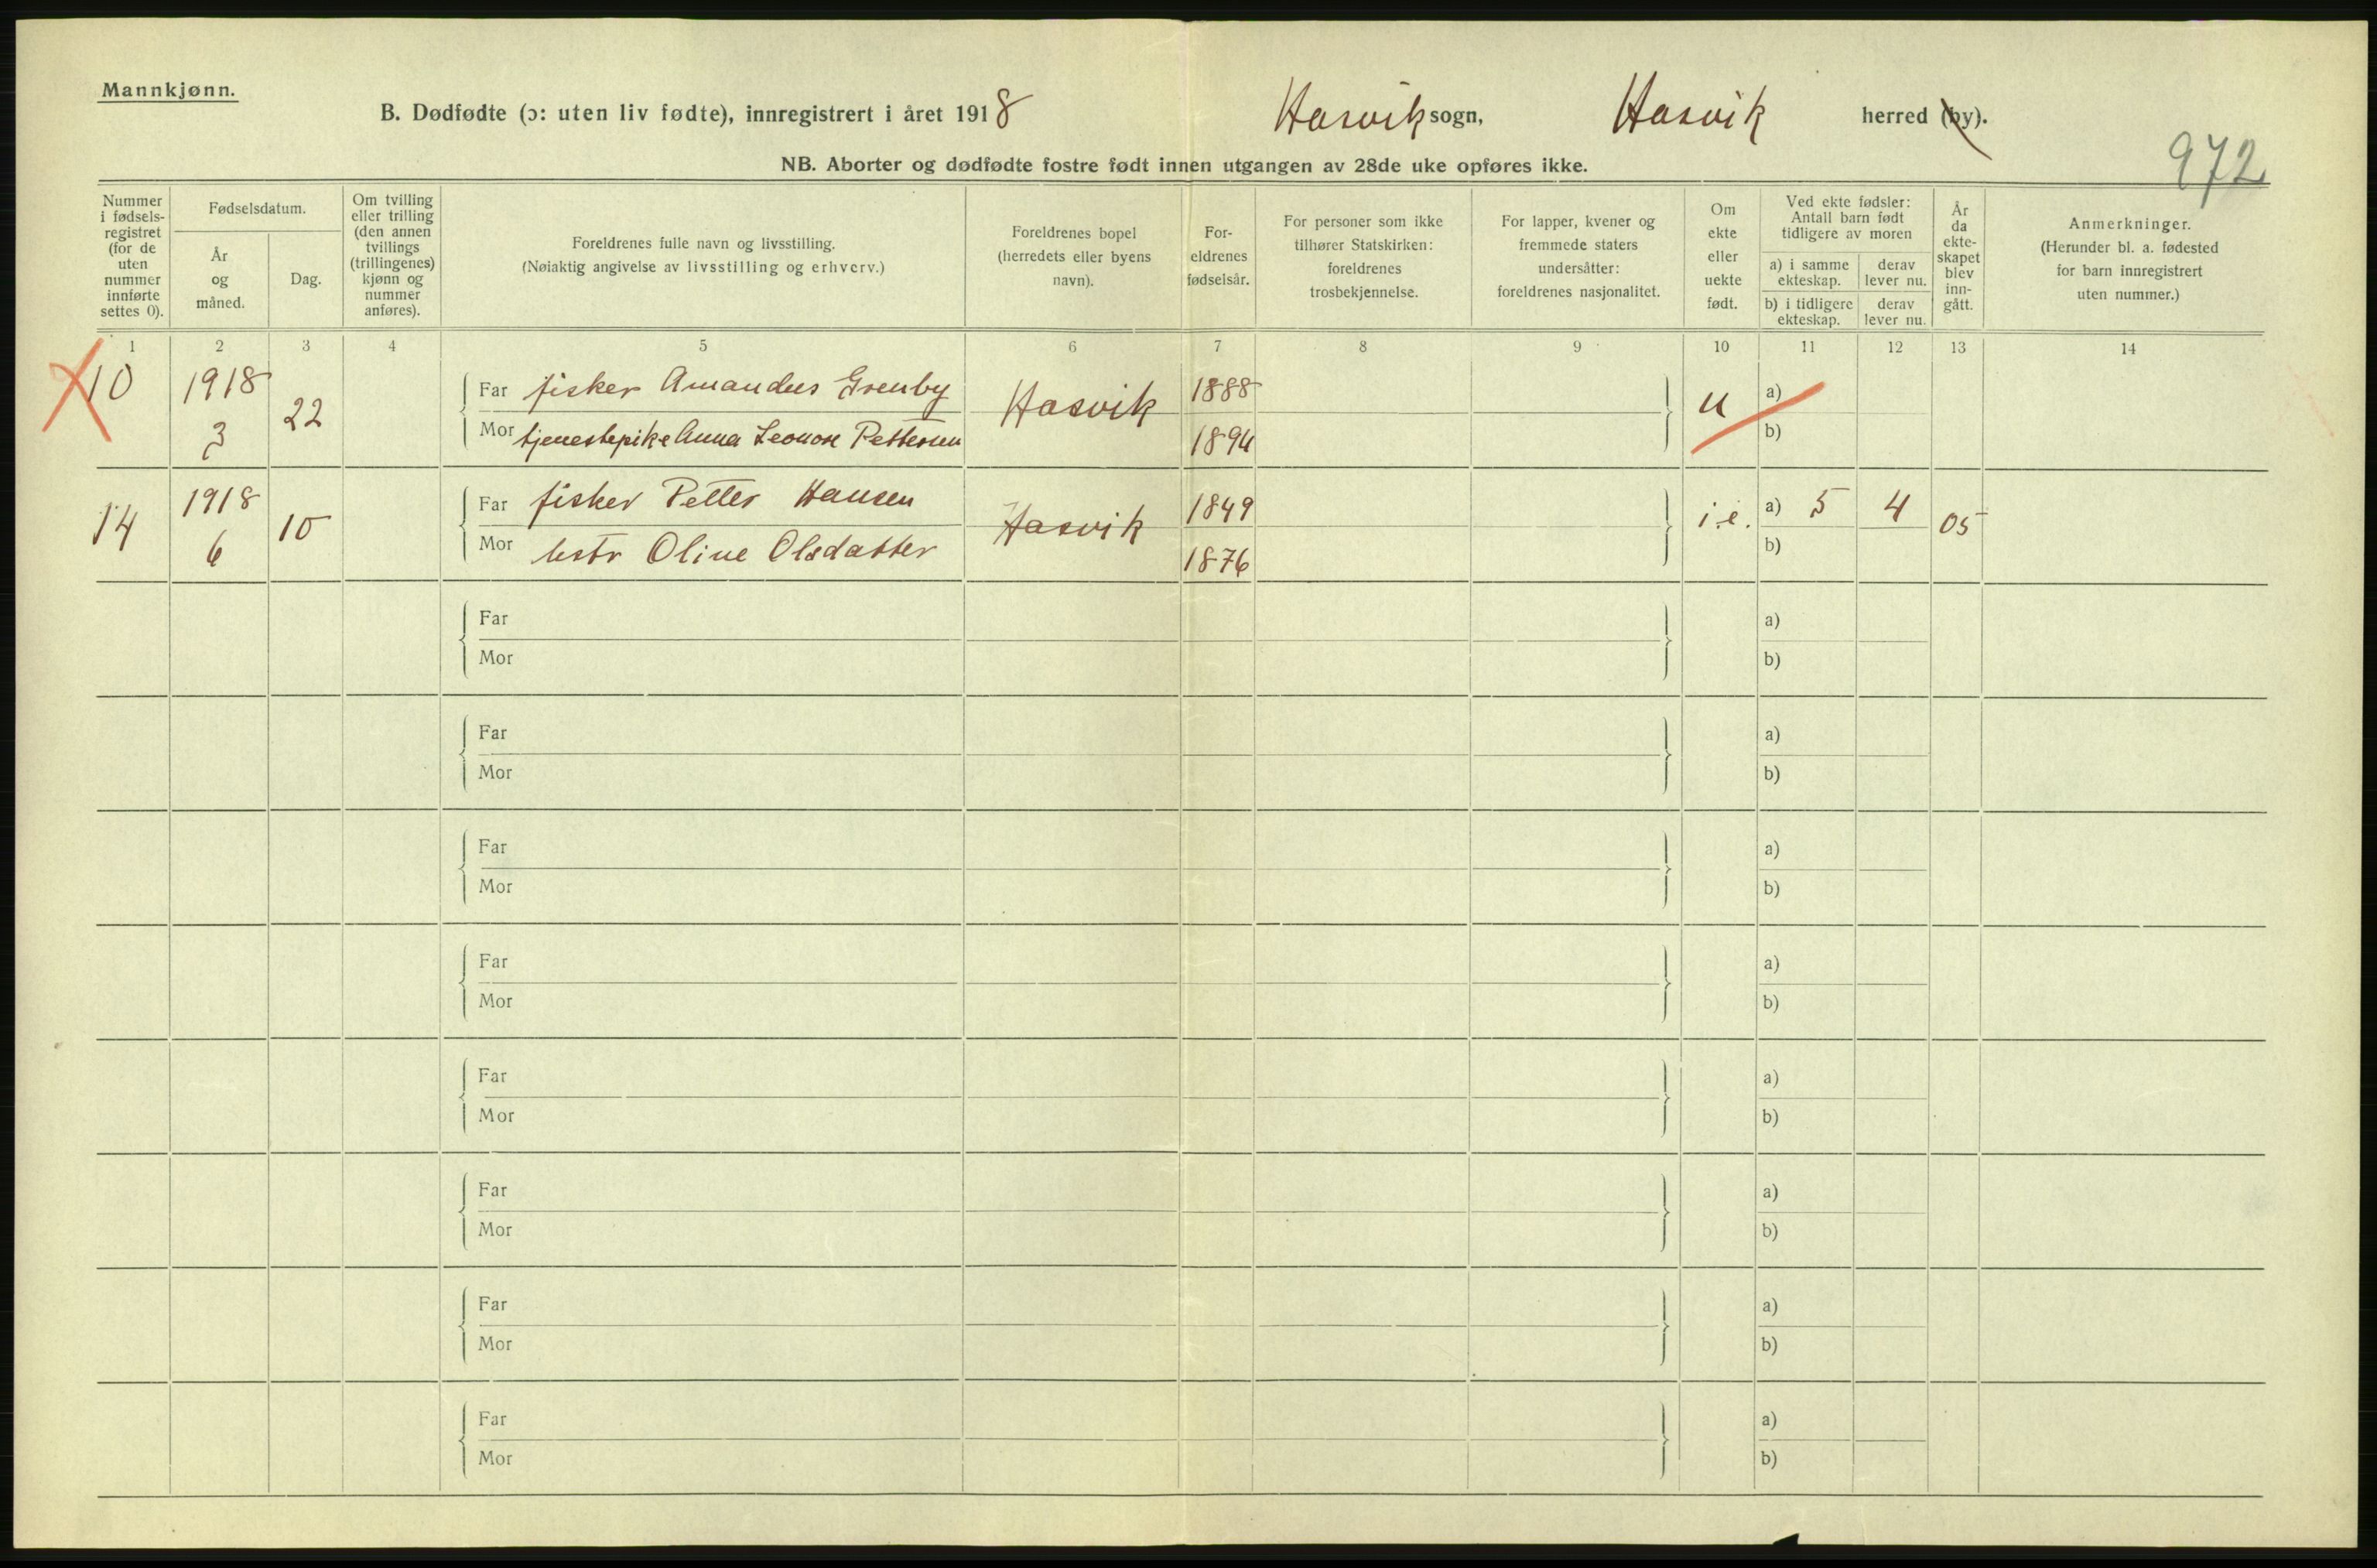 Mannkjønn.
B. Dødfødte (ɔ: uten liv fødte), innregistrert i året 1918 Hasvik sogn, Hasvik herred (by).
972
NB. Aborter og dødfødte fostre født innen utgangen av 28de uke opføres ikke.
Nummer i fødsels- registret (for de uten nummer innførte settes 0).
Fødselsdatum.
År og måned.
Dag.
Om tvilling eller trilling (den annen tvillings (trillingenes) kjønn og nummer anføres).
Foreldrenes fulle navn og livsstilling.
(Nøiaktig angivelse av livsstilling og erhverv.)
Foreldrenes bopel (herredets eller byens navn).
For- eldrenes fødselsår.
For personer som ikke tilhører Statskirken: foreldrenes trosbekjennelse.
For lapper, kvener og fremmede staters undersåtter: foreldrenes nasjonalitet.
Om ekte eller uekte født.
Ved ekte fødsler: Antall barn født tidligere av moren
a) i samme ekteskap.
derav lever nu.
b) i tidligere ekteskap.
derav lever nu.
År da ekte- skapet blev inn- gått.
Anmerkninger.
(Herunder bl. a. fødested for barn innregistrert uten nummer.)
1 2 3 4 5 6 7 8 9 10 11 12 13 14
10 1918 3 22
Far fisker Amandus Grenby Hasvik 1888 u a)
Mor tjenestepike Anna Leonore Pettersen 1894 b)
14 1918 6 10
Far fisker Petter Hansen Hasvik 1849 i.e. a) 5 4 05
Mor hstr Oline Olsdatter 1876 b)
Far a)
Mor b)
Far a)
Mor b)
Far a)
Mor b)
Far a)
Mor b)
Far a)
Mor b)
Far a)
Mor b)
Far a)
Mor b)
Far a)
Mor b)